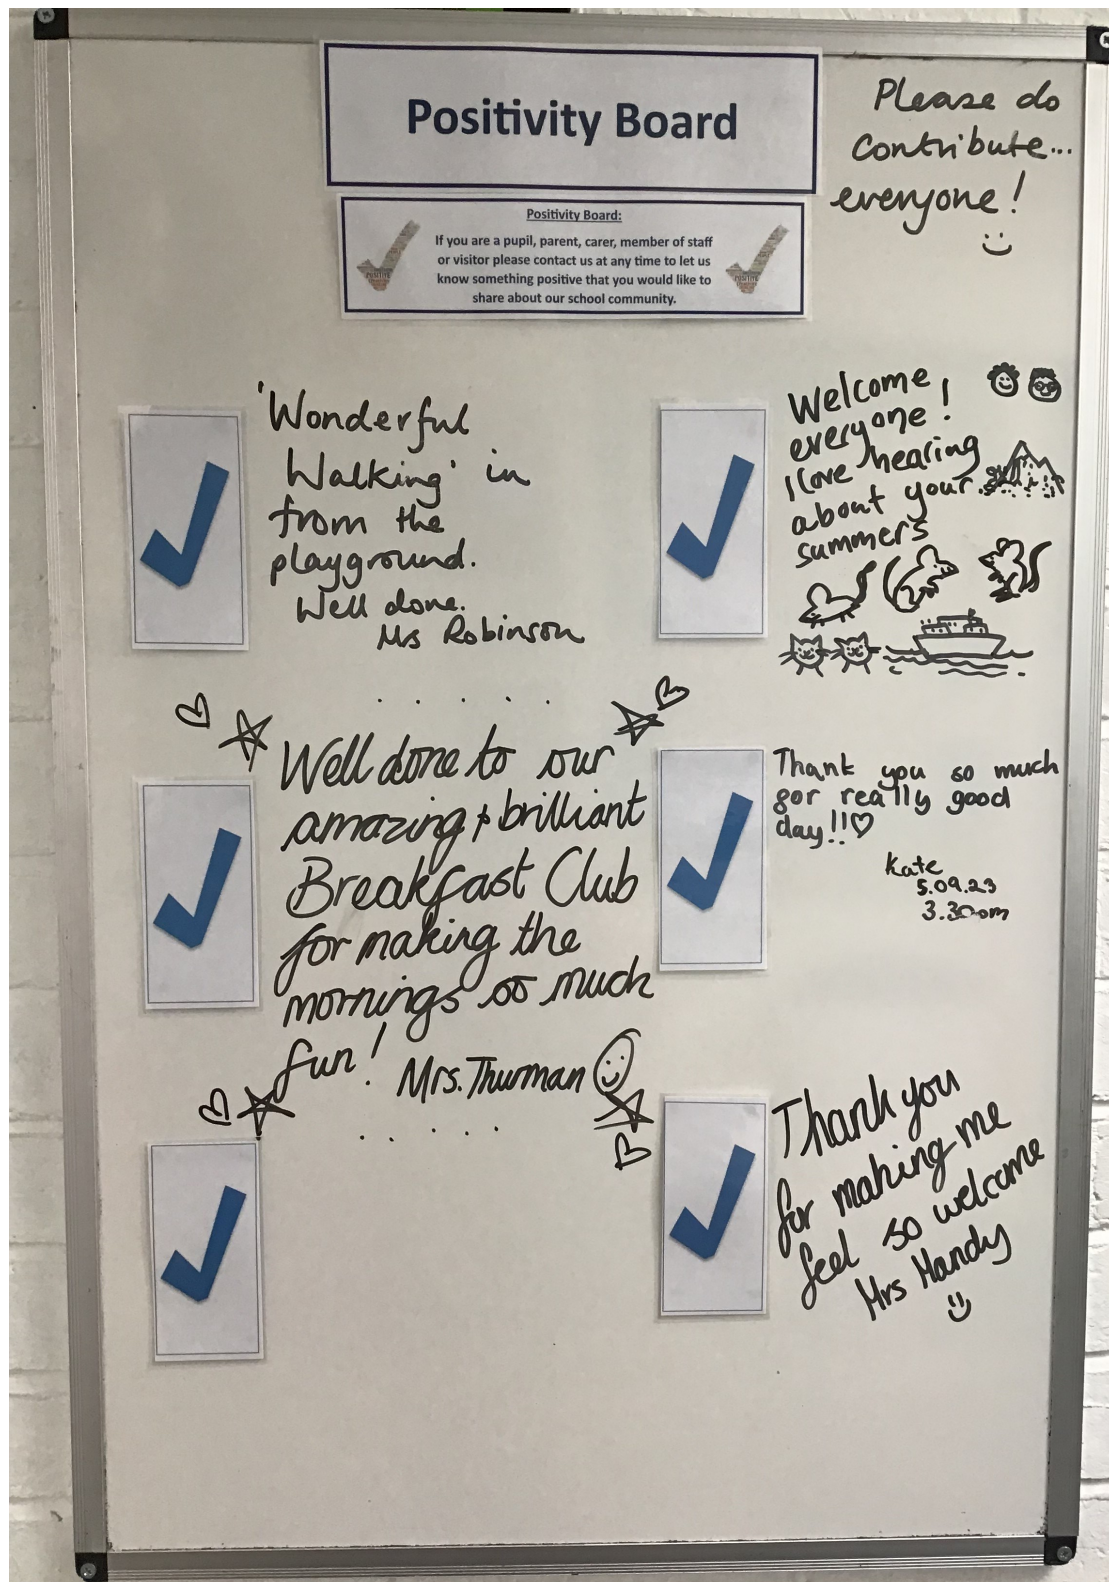 Positivity Board
Please do
contribute...
everyone!
Positivity Board:
If you are a pupil, parent, carer, member of staff
or visitor please contact us at any time to let us
know something positive that you would like to
share about our school community.
'Wonderful
Walking' in
from the
playground.
Well done.
Ms Robinson
Welcome
everyone!
I love hearing
about your
summers
Well done to our
amazing & brilliant
Breakfast Club
for making the
mornings so much
fun!
Mrs. Thurman
Thank you so much
gor really good
day!!♡
Kate
5.09.23
3.30pm
Thank you
for making me
feel so welcome
Mrs Handy